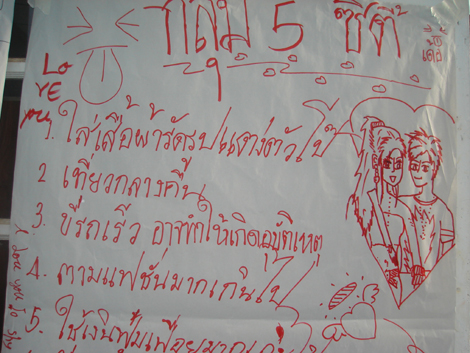 กลุ่ม 5 ชีดี
Love you
1. ใส่เสื้อผ้ารัดรูปแต่งตัวโป๊
2 เที่ยวกลางคืน
3. ขี่รถเร็ว อาจทำให้เกิดอุบัติเหตุ
4. ตามแฟชั่นมากเกินไป
5. ใช้เงินฟุ่มเฟือยมาก